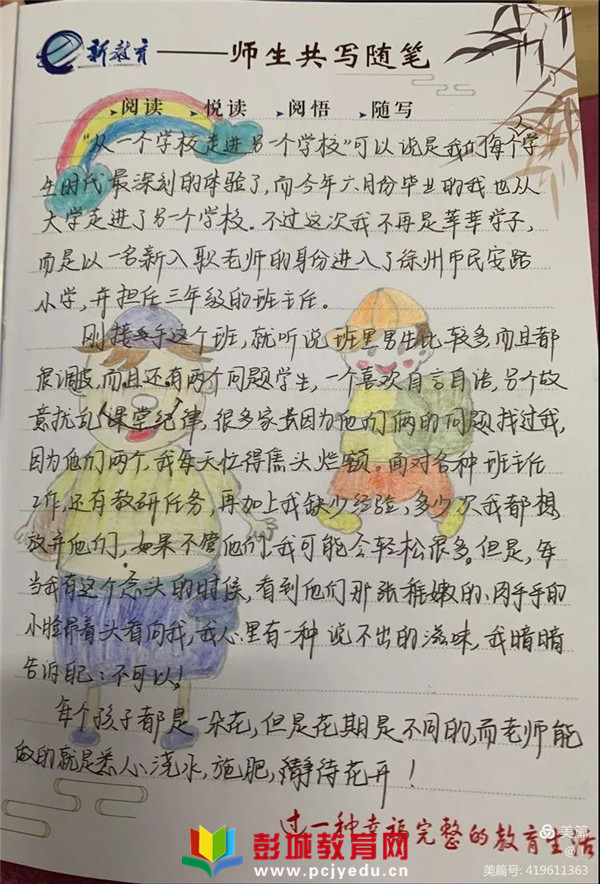 新教育——师生共写随笔
阅读 悦读 阅悟 随写
"从一个学校走进另一个学校"可以说是我们每个学
生时代最深刻的体验了,而今年六月份毕业的我也从
大学走进了另一个学校。不过这次我不再是莘莘学子,
而是以一名新入职老师的身份进入了徐州市民安路
小学,并担任三年级的班主任。
刚接手这个班,就听说班里男生比较多而且都
很调皮,而且还有两个问题学生,一个喜欢自言自语,另个故
意扰乱课堂纪律,很多家长因为他们俩的问题找过我,
因为他们两个,我每天忙得焦头烂额。面对各种班主任
工作,还有教研任务,再加上我缺少经验,多少次我都想
放弃他们,如果不管他们,我可能会轻松很多。但是,每
当我有这个念头的时候,看到他们那张稚嫩的、肉乎乎的
小脸昂着头看向我,我心里有一种说不出的滋味,我暗暗
告诉自己:不可以!
每个孩子都是一朵花,但是花期是不同的,而老师能
做的就是悉心浇水,施肥,静待花开!
过一种幸福完整的教育生活
彭城教育网
www.pcjyedu.cn
美篇
美篇号: 419611363